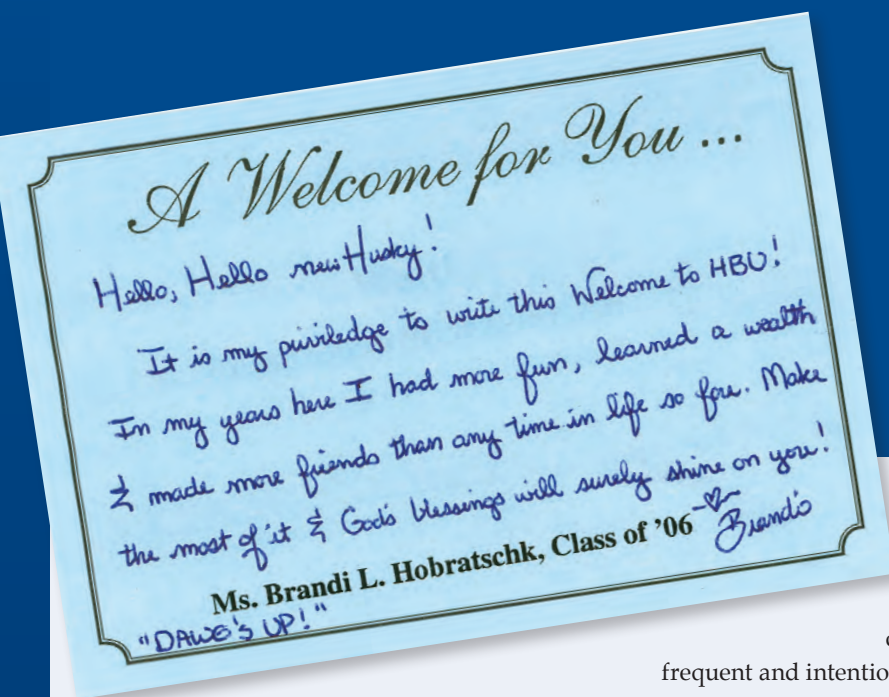 A Welcome for You ...
Hello, Hello new Husky!
It is my priviledge to write this Welcome to HBU!
In my years here I had more fun, learned a wealth
& made more friends than any time in life so far. Make
the most of it & God's blessings will surely shine on you!
Brandi
Ms. Brandi L. Hobratschk, Class of '06
"DAWG'S UP!"
frequent and intentio